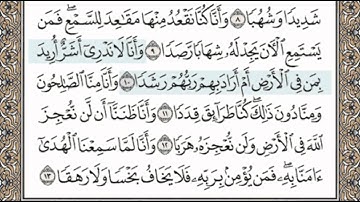 شَدِيدًا وَشُهُبًا ٨ وَأَنَّا كُنَّا نَقْعُدُ مِنْهَا مَقَٰعِدَ لِلسَّمْعِ ۖ فَمَن
يَسْتَمِعِ ٱلْـَٔانَ يَجِدْ لَهُۥ شِهَابًا رَّصَدًا ٩ وَأَنَّا لَا نَدْرِىٓ أَشَرٌّ أُرِيدَ
بِمَن فِى ٱلْأَرْضِ أَمْ أَرَادَ بِهِمْ رَبُّهُمْ رَشَدًا ١٠ وَأَنَّا مِنَّا ٱلصَّٰلِحُونَ
وَمِنَّا دُونَ ذَٰلِكَ ۖ كُنَّا طَرَآئِقَ قِدَدًا ١١ وَأَنَّا ظَنَنَّآ أَن لَّن نُّعْجِزَ
ٱللَّهَ فِى ٱلْأَرْضِ وَلَن نُّعْجِزَهُۥ هَرَبًا ١٢ وَأَنَّا لَمَّا سَمِعْنَا ٱلْهُدَىٰٓ
ءَامَنَّا بِهِۦ ۖ فَمَن يُؤْمِنۢ بِرَبِّهِۦ فَلَا يَخَافُ بَخْسًا وَلَا رَهَقًا ١٣